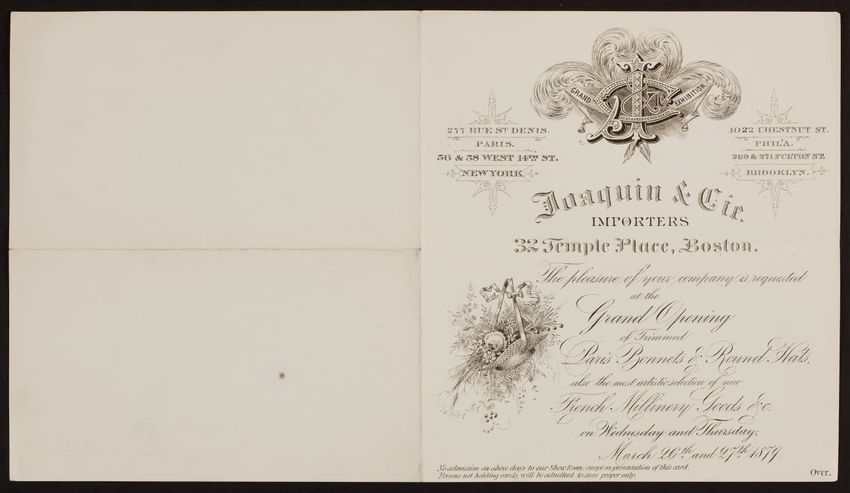 GRAND EXHIBITION
J & Cie
277 RUE ST DENIS.
PARIS.
56 & 58 WEST 14TH ST.
NEW YORK
1022 CHESTNUT ST.
PHIL'A.
269 & 271 FULTON ST.
BROOKLYN.
Joaquin & Cie.
IMPORTERS
32 Temple Place, Boston.
The pleasure of your company is requested
at the
Grand Opening
of Trimmed
Paris Bonnets & Round Hats.
also the most artistic selection of new
French Millinery Goods &c.
on Wednesday and Thursday,
March 26th and 27th 1879.
No admission on above days to our Show Room, except on presentation of this card.
Persons not holding cards, will be admitted to store proper only.
Over.